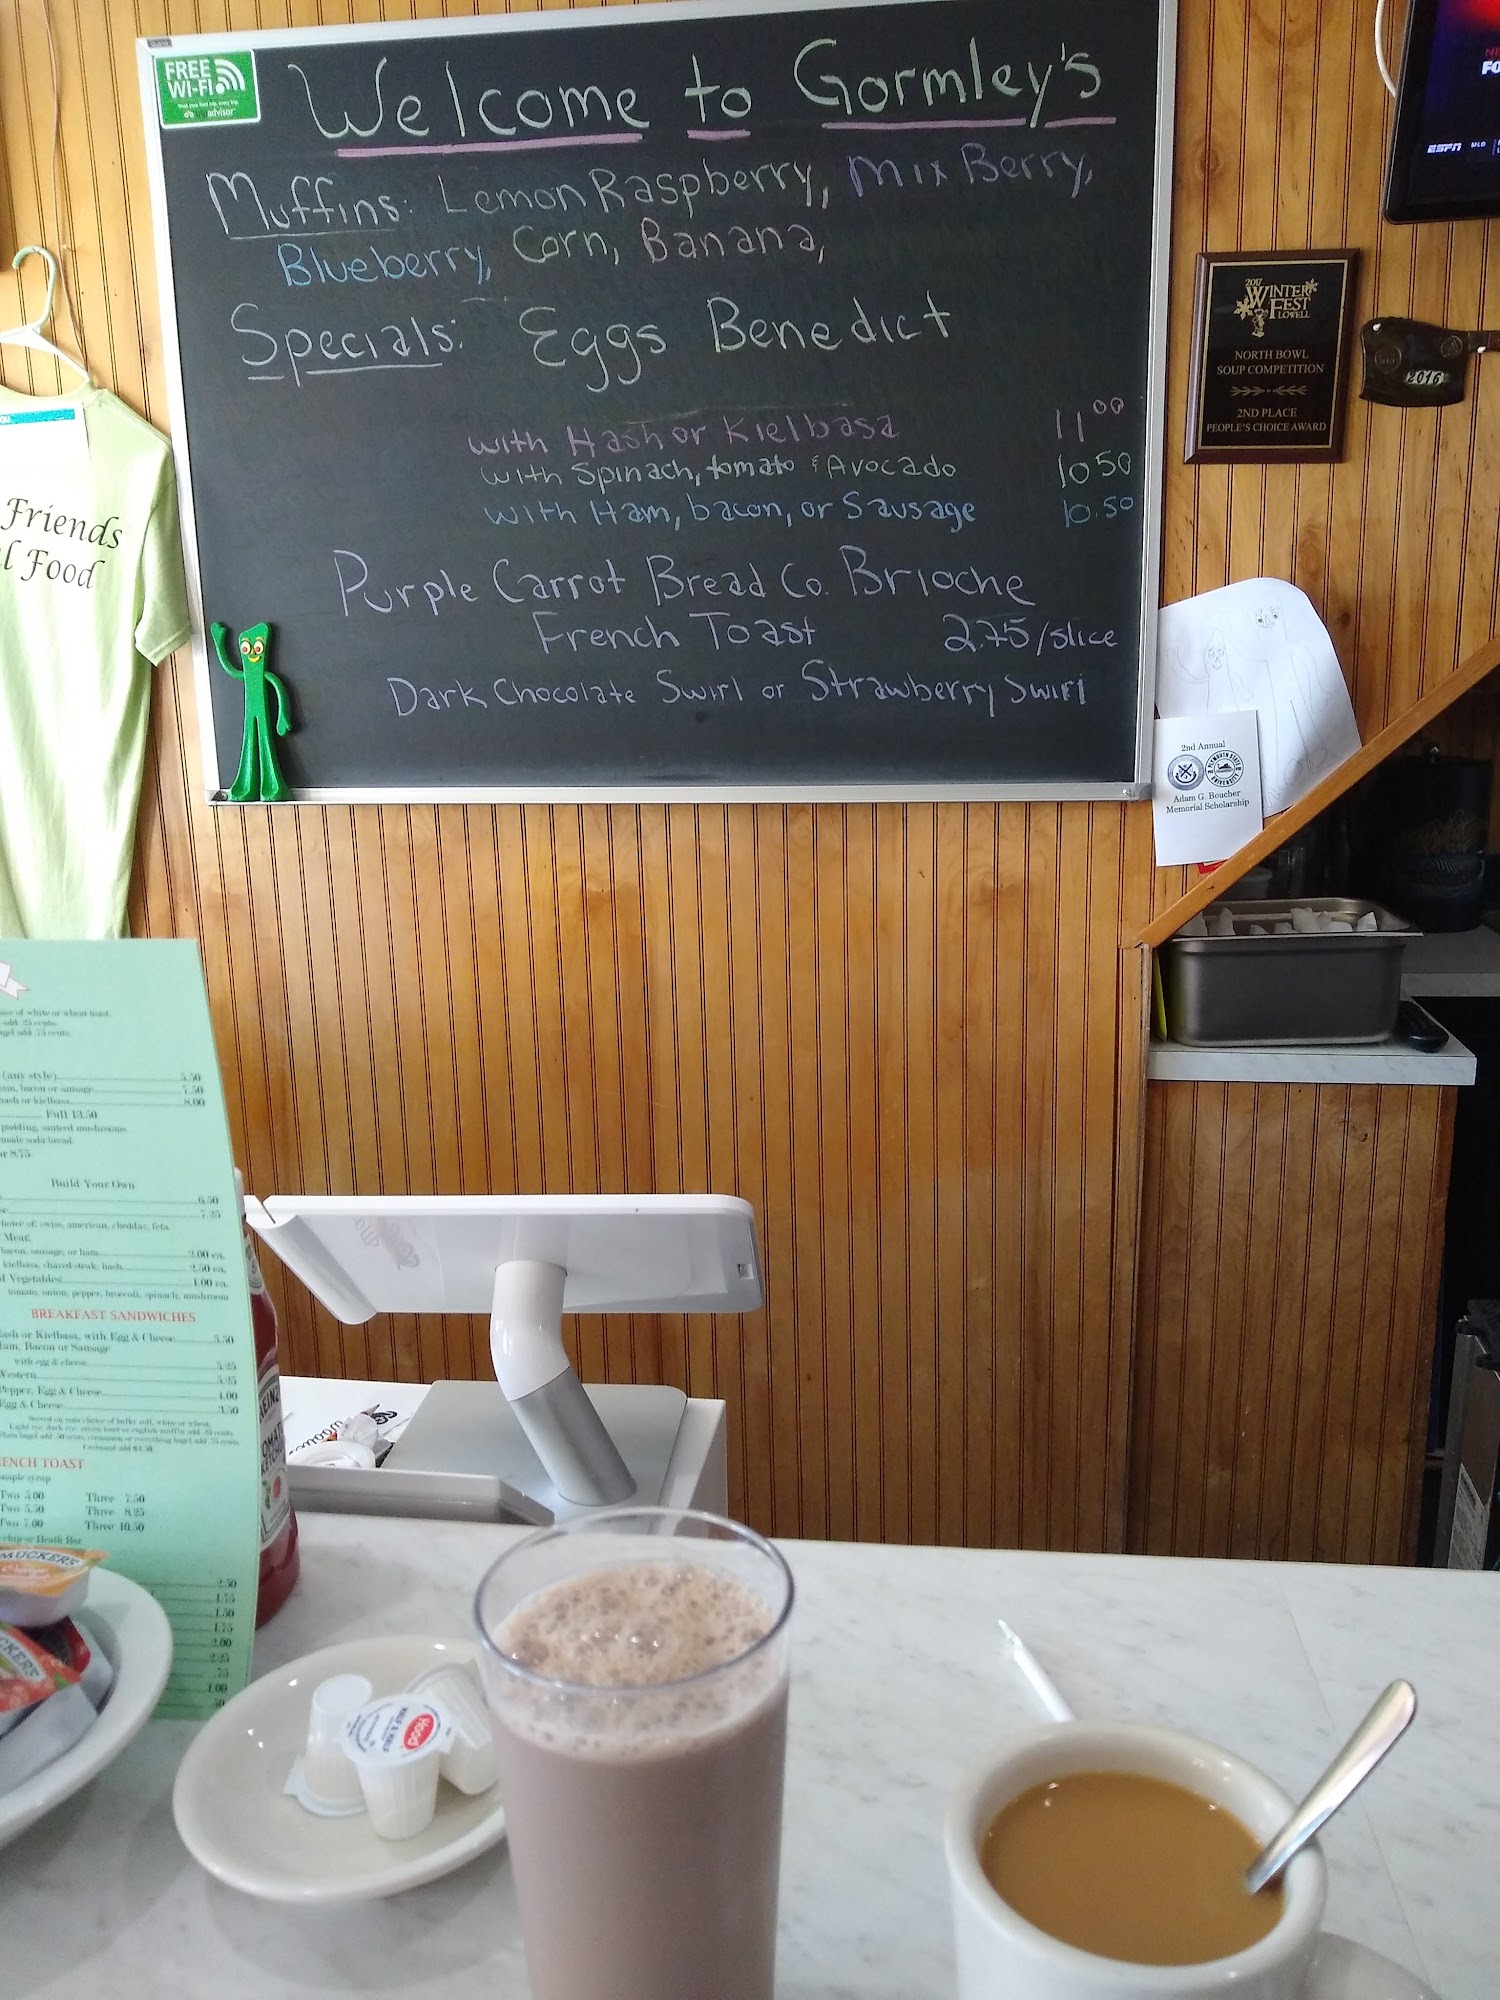 FREE
WI-FI
advisor
Welcome to Gormley's
Muffins: Lemon Raspberry, Mix Berry,
Blueberry, Corn, Banana,
Specials: Eggs Benedict
with Hash or Kielbasa 11.00
with Spinach, tomato & Avocado 10.50
with Ham, bacon, or Sausage 10.50
Purple Carrot Bread Co. Brioche
French Toast 2.75/slice
Dark Chocolate Swirl or Strawberry Swirl
ESPN
FO
2017
WINTER
FEST
LOWELL
NORTH BOWL
SOUP COMPETITION
2ND PLACE
PEOPLE'S CHOICE AWARD
2016
2nd Annual
PLYMOUTH STATE UNIVERSITY
Adam G. Boucher
Memorial Scholarship
Friends
l Food
ice of white or wheat toast.
add .25 cents.
gel add .75 cents.
(any style) 5.50
ham, bacon or sausage 7.50
hash or kielbasa 8.00
Full 13.50
pudding, sauteed mushrooms
made soda bread.
or 8.75
Build Your Own
6.50
7.25
hoice of: swiss, american, cheddar, feta
Meat:
bacon, sausage, or ham 2.00 ea.
kielbasa, shaved steak, hash 2.50 ea.
d Vegetables: 1.00 ea.
tomato, onion, pepper, broccoli, spinach, mushroom
BREAKFAST SANDWICHES
ash or Kielbasa, with Egg & Cheese 5.50
am, Bacon or Sausage
with egg & cheese 5.25
Western 5.25
Pepper, Egg & Cheese 4.00
Egg & Cheese 3.50
Served on your choice of bulky roll, white or wheat.
Light rye, dark rye, raisin toast or english muffin add .25 cents.
Plain bagel add .50 cents, cinnamon or everything bagel add .75 cents.
Croissant add $1.50
ENCH TOAST
maple syrup
Two 5.00 Three 7.50
Two 5.50 Three 8.25
Two 7.00 Three 10.50
chip or Heath Bar
2.50
1.75
1.50
1.75
2.00
2.25
.75
1.00
.50
HEINZ
TOMATO
KETCHUP
MUCKER'S
CKER'S
Hood
HALF & HALF